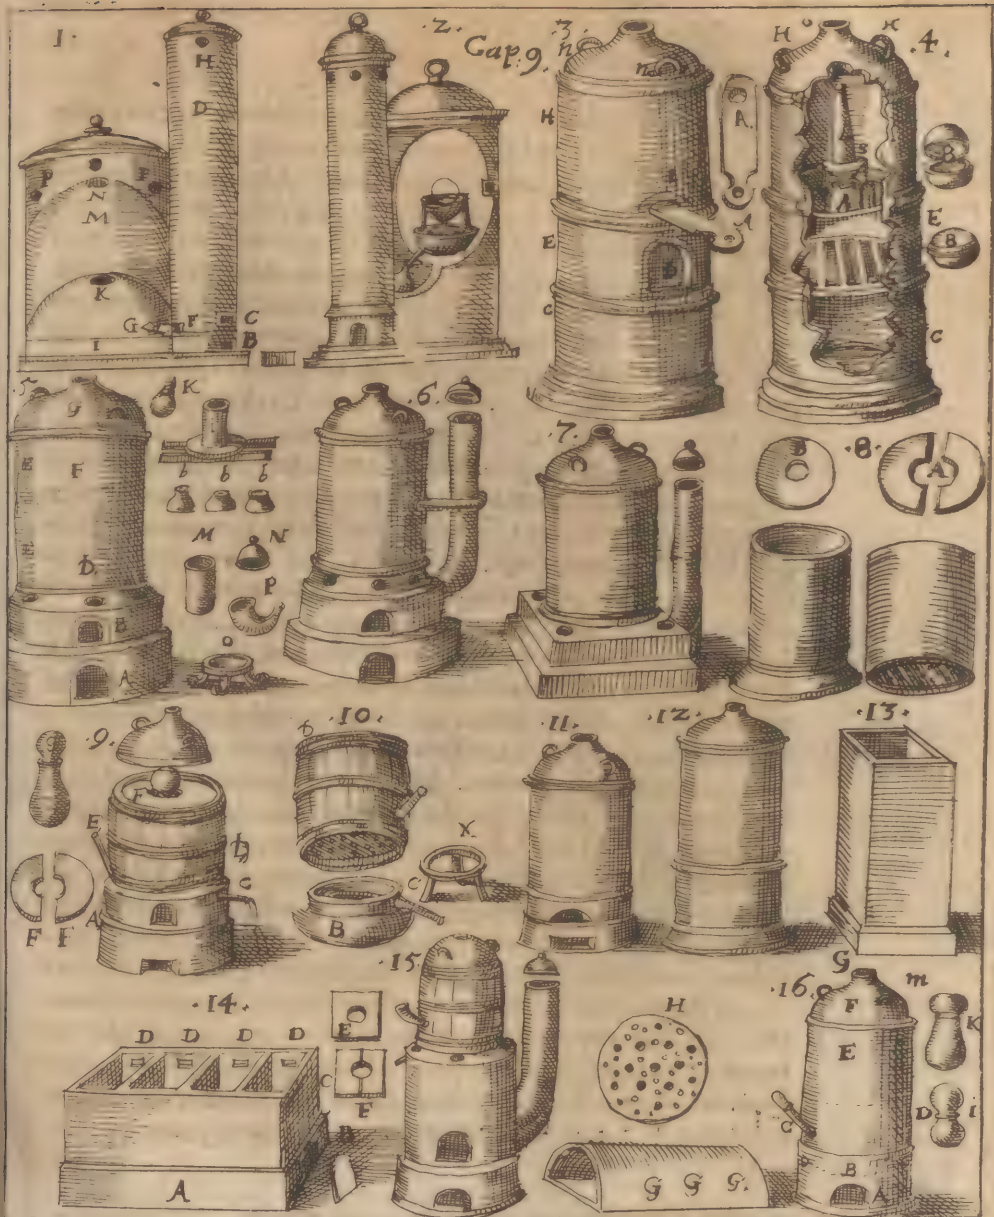 1.
H
D
P
P
N
M
K
G
F
C
B
I
.2.
Cap. 9.
.3.
n
n
H
A
E
D
A
C
.4.
H
H
A
B
E
B
C
.5.
g
E
F
D.
B
A
K
b b b
M
N
P
o
.6.
.7.
.8.
B
A
.9.
F
E
D
C
A
F F
.10.
D
C
B
X.
.11.
.12.
.13.
.14.
D D D D
E
C
F
B
A
.15.
H
G G G.
.16.
G
F
m
K
E
D
I
C
B
A